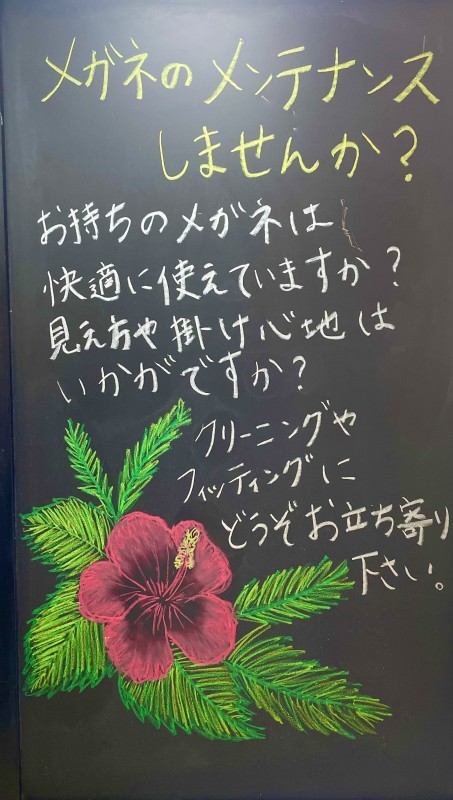 メガネのメンテナンス
しませんか？
お持ちのメガネは
快適に使えていますか？
見え方や掛け心地は
いかがですか？
クリーニングや
フィッティングに
どうぞお立ち寄り
下さい。